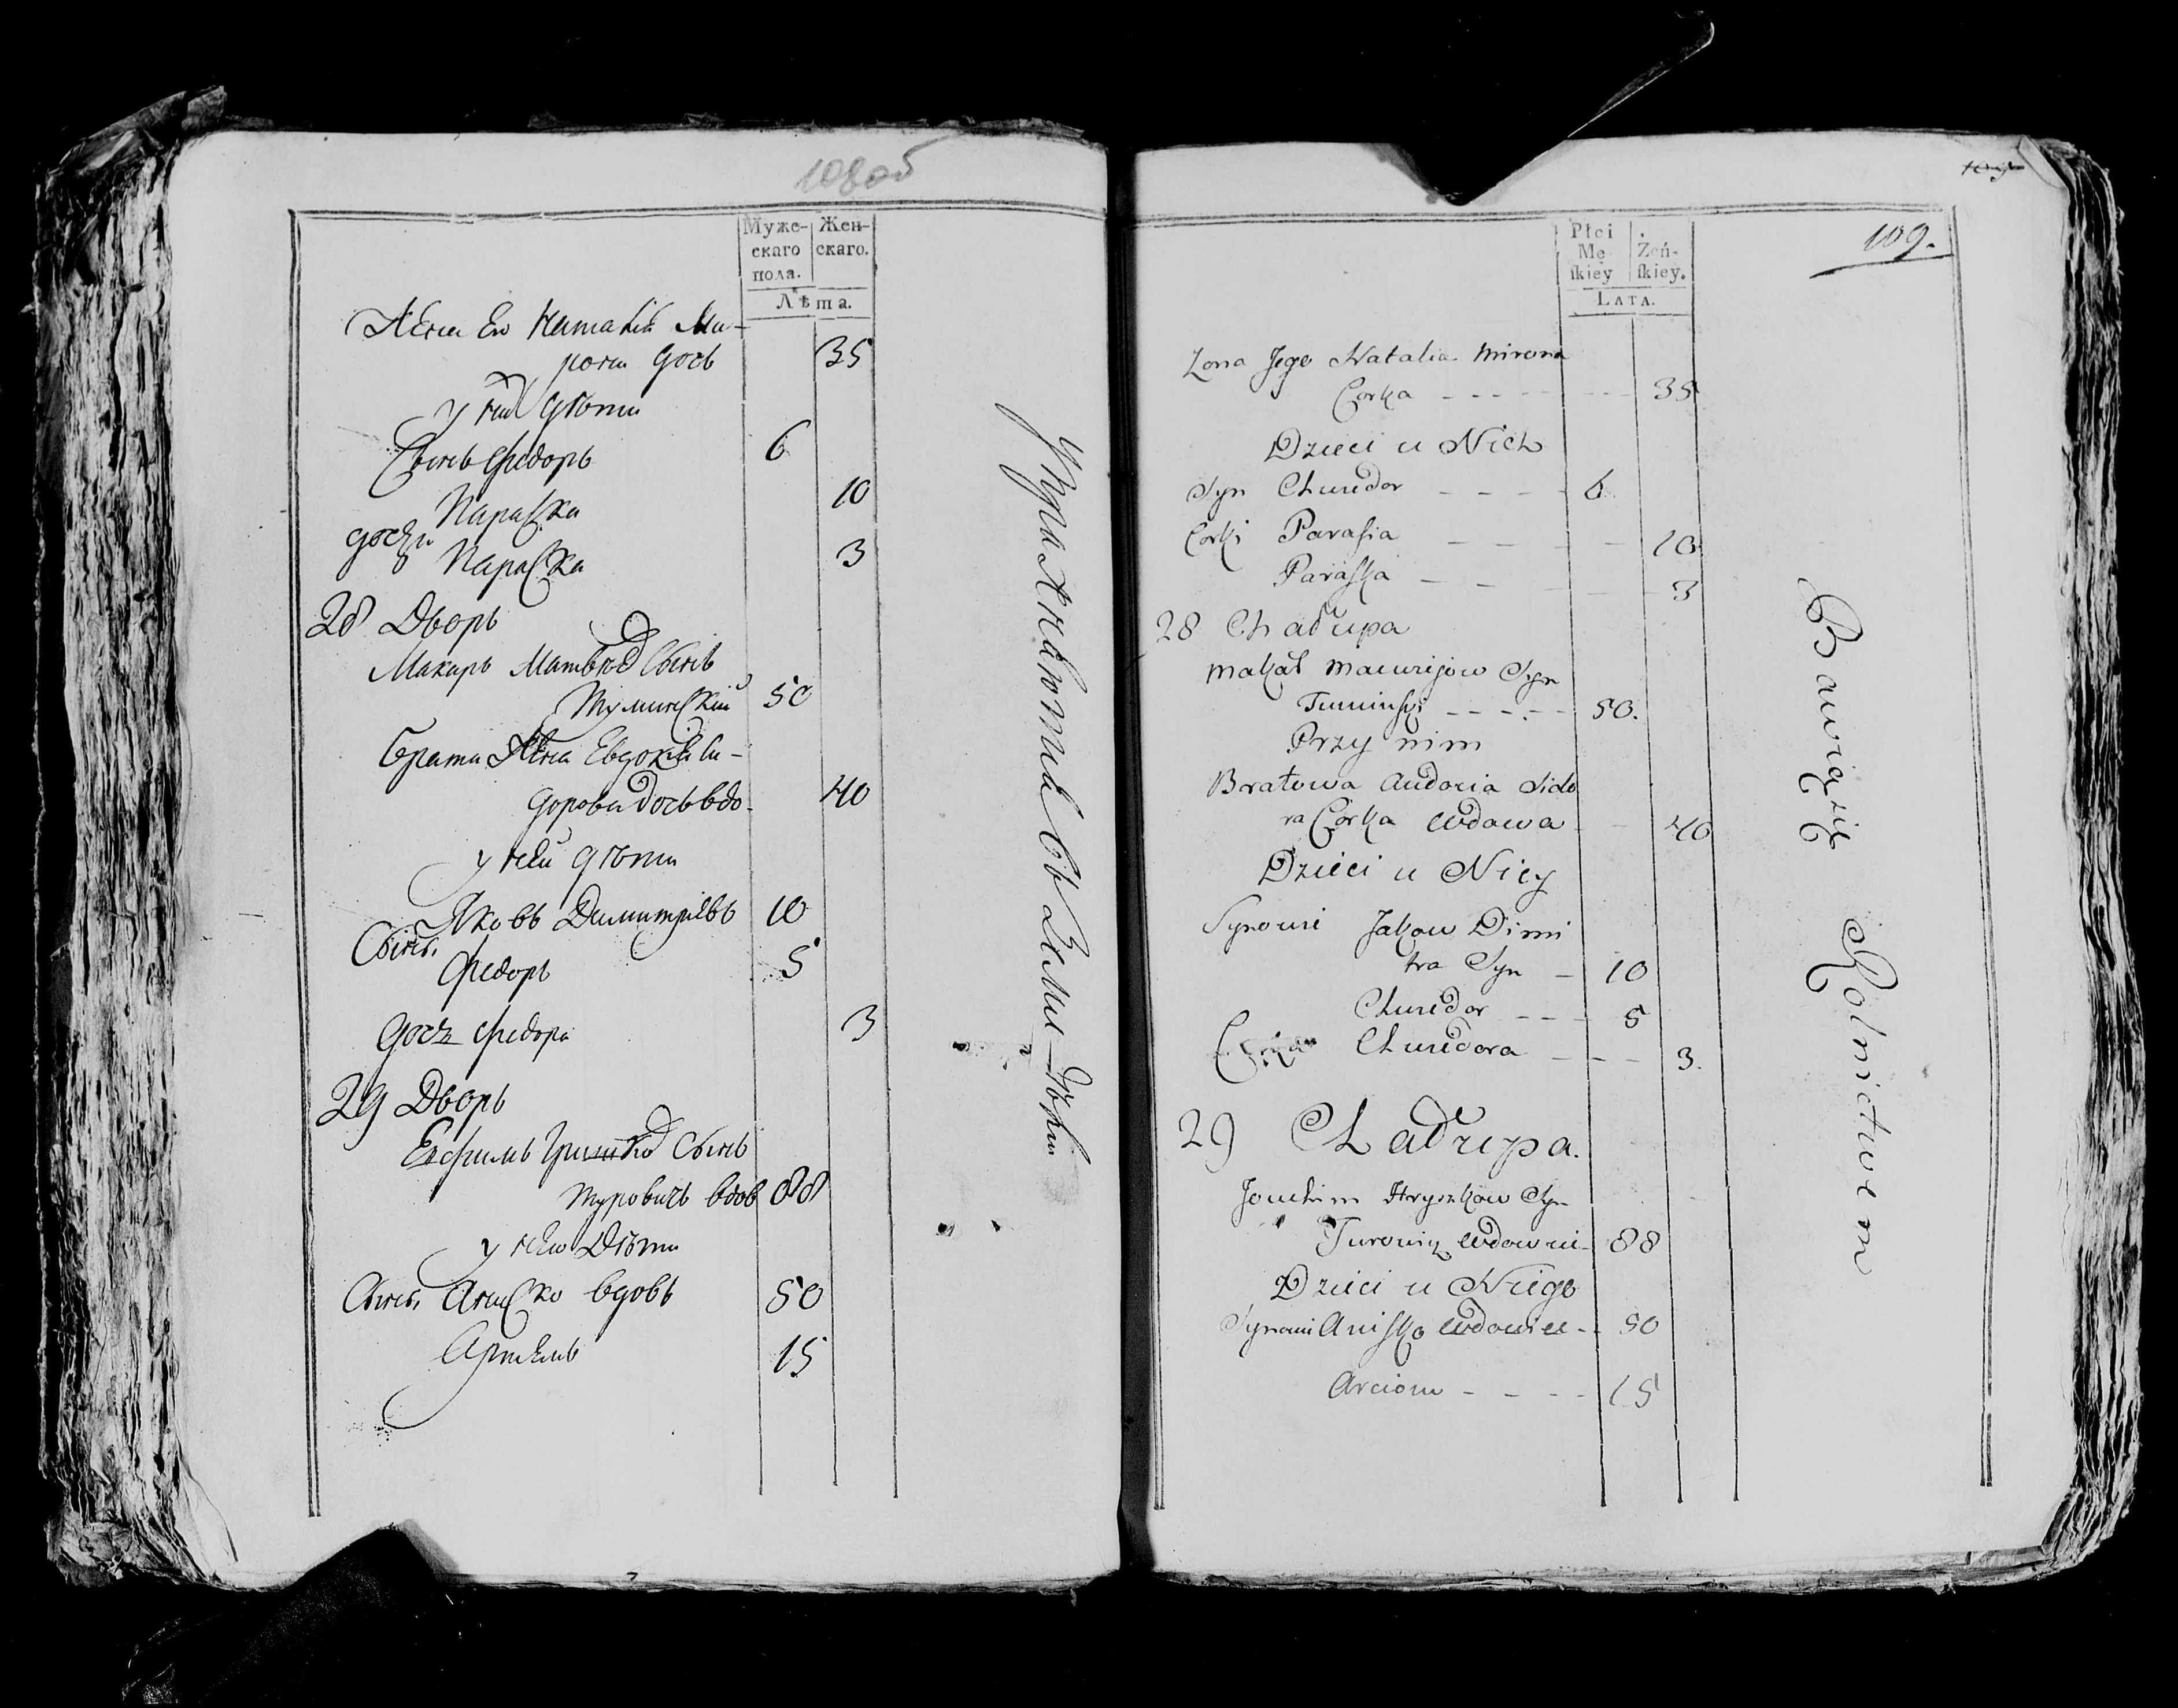 108об
Муже-
скаго
пола.
Жен-
скаго.
Лѣта.
Жена Ево Наталія Ми-
рона дочь 35
у них дѣти
Сынъ Федоръ 6
Параска 10
дочери
Параска 3
28 Дворъ
Макаръ Матвѣев Сынъ
Туминскій 50
брата Жена Евдокія Си-
дорова дочь вдо. 40
у ней дѣти
Яковъ Димитріевъ 10
Сынъ.
Федоръ 5
дочь Федора 3
29 Дворъ
Ехимъ Гришков Сынъ
Туровичъ вдов 88
у нево Дѣти
Сынъ. Аниско вдовъ 50
Артемъ 15
Упражняютца въ Земле-дѣлии
109
109.
Płci
Mę
ſkiey
Żeń-
ſkiey.
LATA.
Zona Jego Natalia Mirona
Corka - - - - 35
Dzieci u Nich
Syn Chwedor - - - - 6
Corki Parasia - - - - 10
Paraska - - - 3
28 Chałupa
Makar Macwiejow Syn
Tuminski - - - - 50.
Przy nim
Bratowa Audocia Sido
ra Corka wdowa - 40
Dzieci u Niey
Synowie Jakow Dimi
tra Syn - 10
Chwedor - - - 5
Corka Chwedora - - - 3.
29 Chałupa.
Jouchim Hryszkow Syn
Turowicz wdowiec - 88
Dzieci u Niego
Synowie Anisko wdowiec - - 50
Arciom - - - - 15
Bawią się Rolnictwem